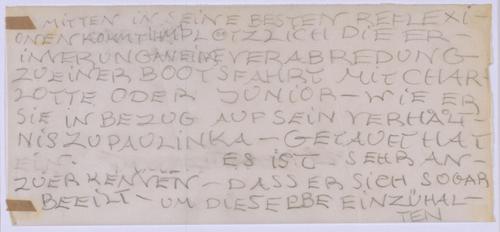 MITTEN IN SEINE BESTEN REFLEXI-
ONEN KOMMT IHM PLÖTZLICH DIE ER-
INNERUNG AN EINE VERABREDUNG
ZU EINER BOOTSFAHRT MIT CHAR-
LOTTE ODER JUNIOR – WIE ER
SIE IN BEZUG AUF SEIN VERHÄLT-
NIS ZU PAULINKA – GETAUFT HAT
EIN. ES IST SEHR AN-
ZUERKENNEN – DASS ER SICH SOGAR
BEEILT – UM DIESELBE EINZUHAL-
TEN